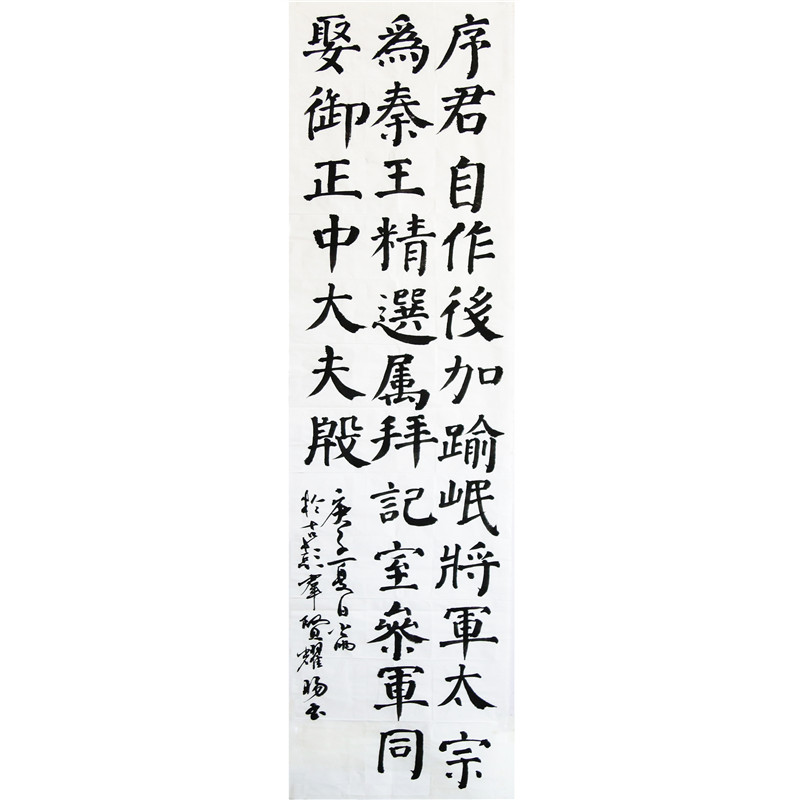 序君自作後加踰岷將軍太宗
為秦王精選属拜記室參軍同
娶御正中大夫殷
庚子夏日
於古 賢耀旸书